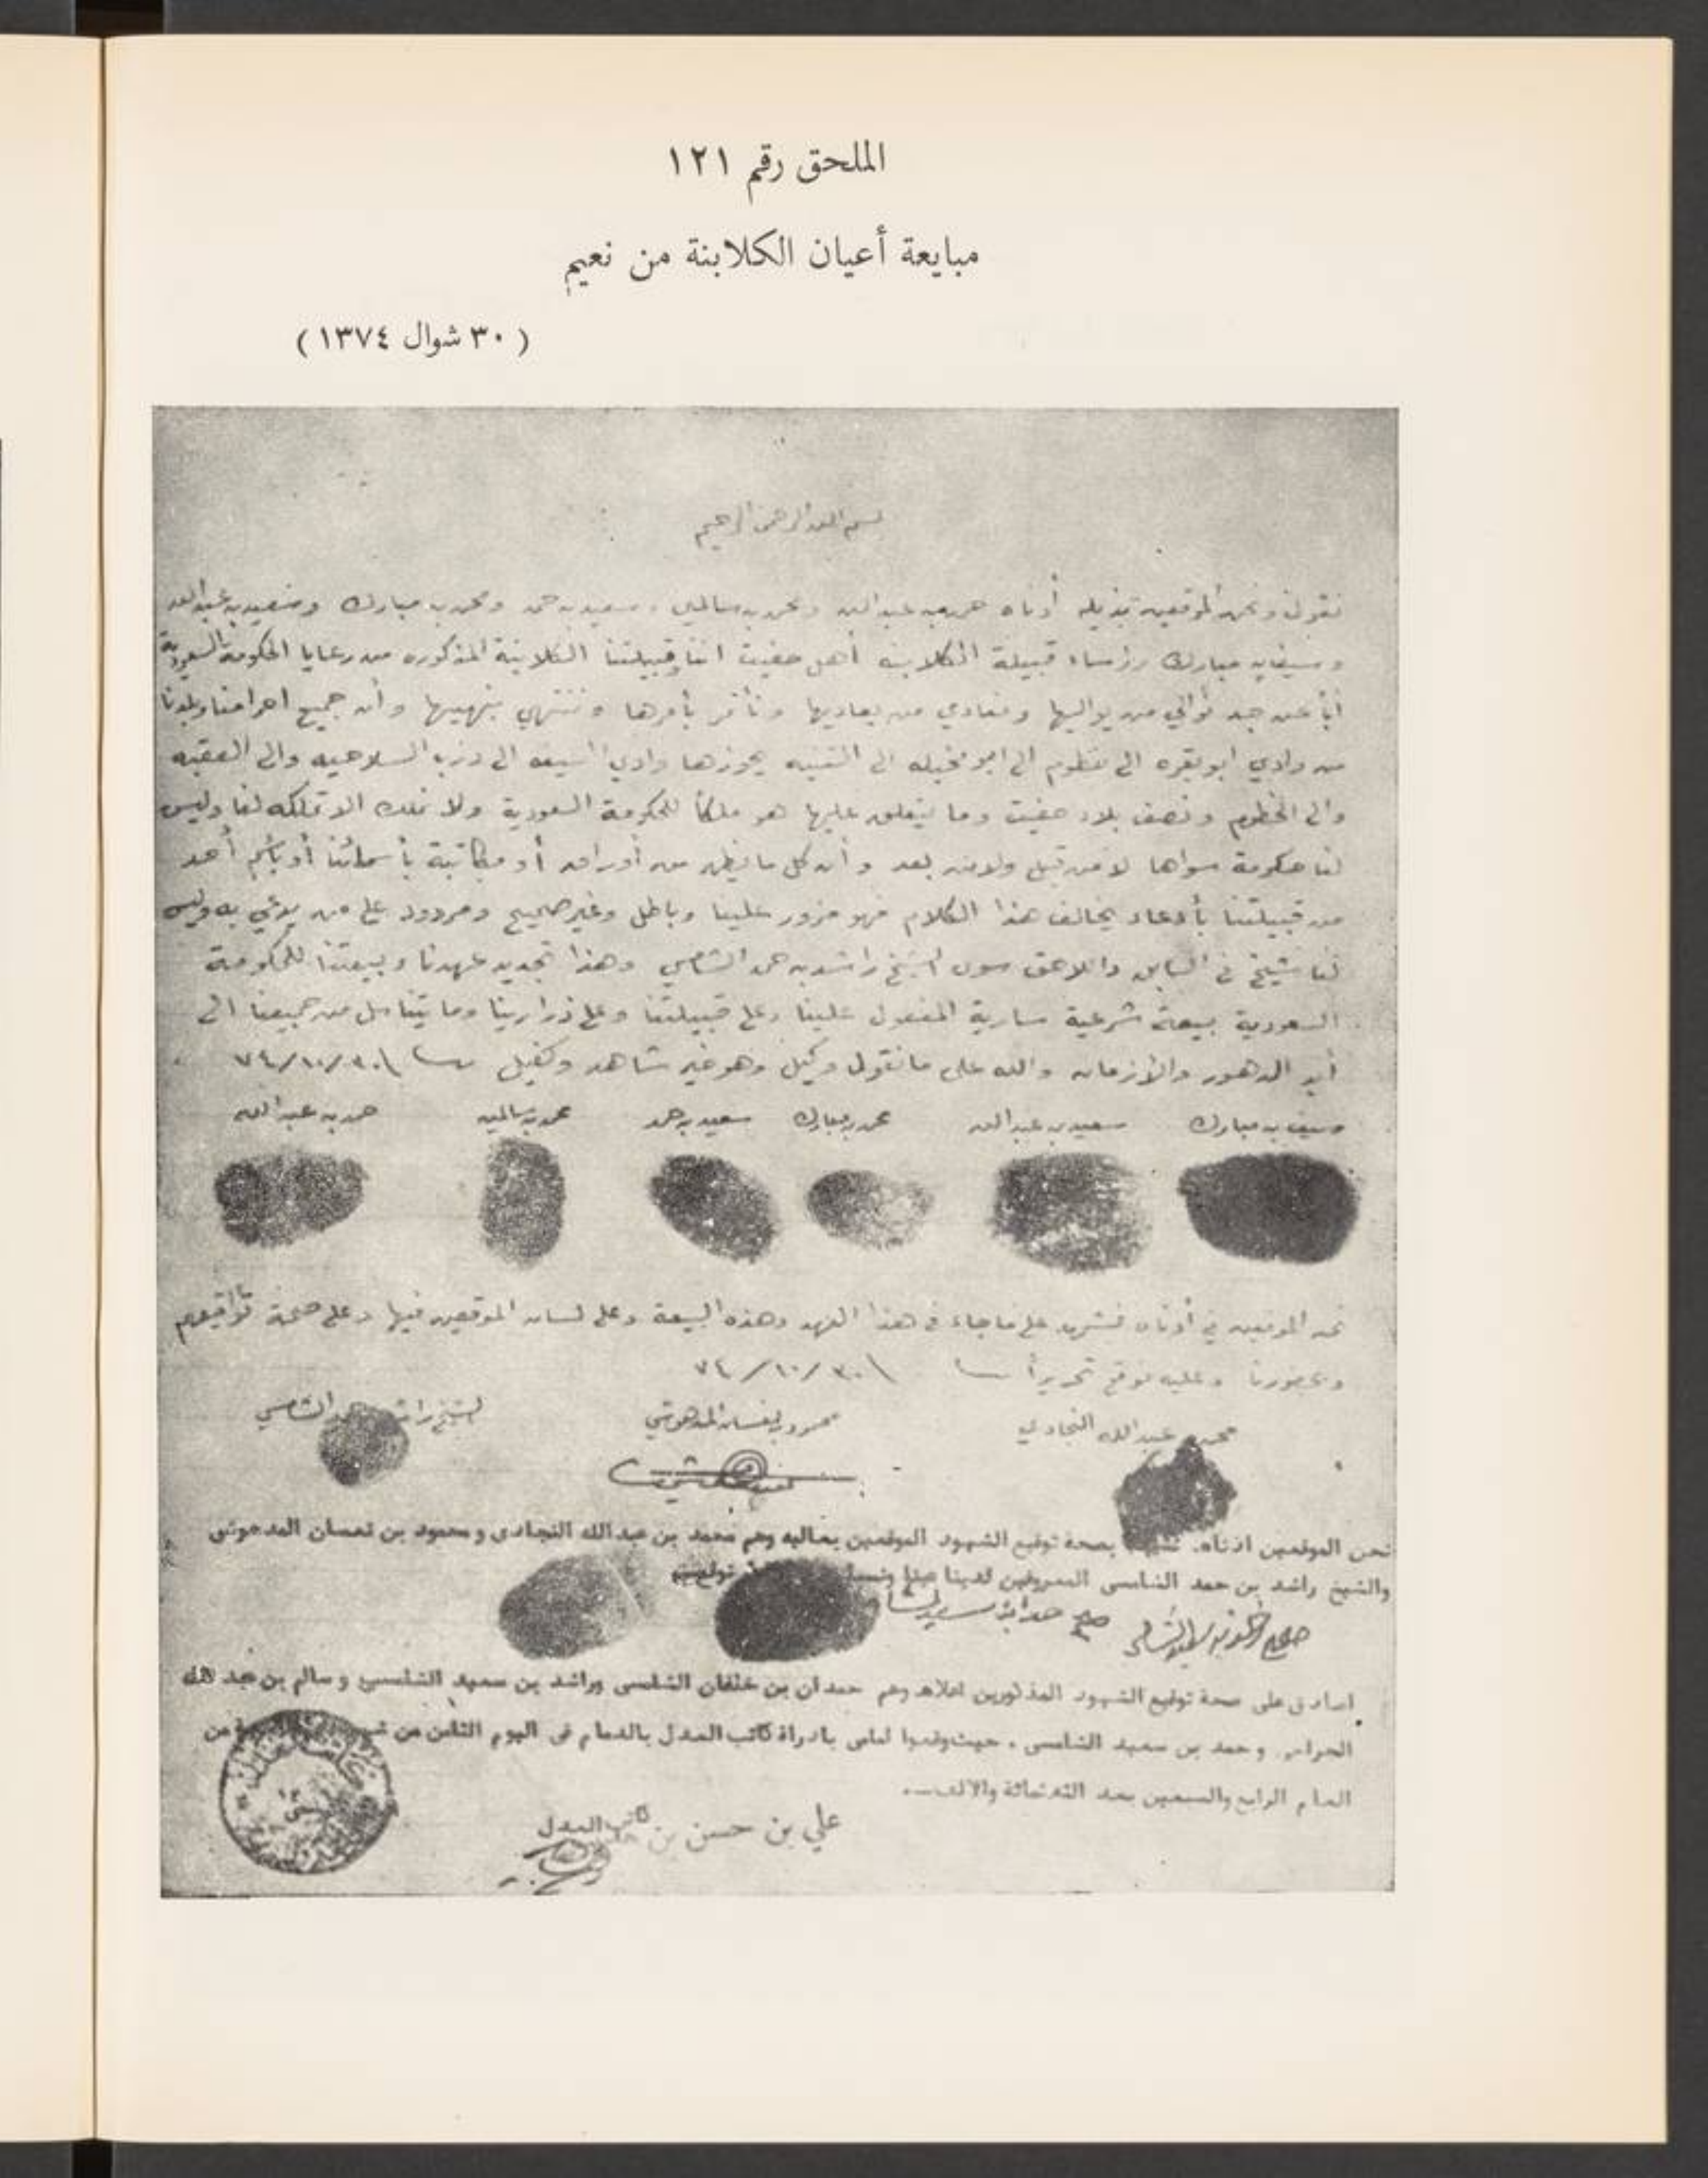 الملحق رقم ١٢١
مبايعة أعيان الكلابنة من نعيم
( ٣٠ شوال ١٣٧٤ )
بسم الله الرحمن الرحيم
نقول ونحن الموقعين بذيله أدناه حمد بن عبدالله ومحمد بن سالمين وسعيد بن حمد ومحمد بن مبارك وسعيد بن عبدالله
وسيف بن مبارك رؤساء قبيلة الكلابنه أهل حفيت اننا وقبيلتنا الكلابنة المذكوره من رعايا الحكومة السعودية
أباً عن جد نوالي من يواليها ونعادي من يعاديها ونأتمر بأمرها وننتهي بنهيها وأن جميع احرامنا وبلدنا
من وادي ابو بقره الى الى ابو نخيله الى يحوزها وادي الى درب والى العقبه
والى الخطوم ونصف بلاد حفيت وما يتعلق عليها هو ملكاً للحكومة السعودية ولا الا تملكه لنا وليس
لنا حكومة سواها لا من قبل ولا من بعد وأن كل ما يظهر من أوراق أو مكاتبة بأسمائنا أو بأسم أحد
من قبيلتنا بأدعاء يخالف هذا الكلام فهو مزور علينا وباطل وغير صحيح ومردود على من يدعي به وليس
لنا شيخ في السابق واللاحق سوى الشيخ راشد بن حمد الشامسي وهذا تجديد عهدنا وبيعتنا للحكومة
السعودية بيعة شرعية سارية المفعول علينا وعلى قبيلتنا وعلى ذرارينا وما يتناسل من جميعنا الى
أبد الدهور والأزمان والله على مانقول وكيل وهو خير شاهد وكفيل ٣٠/١٠/٧٤
وسيف بن مبارك سعيد بن عبدالله محمد بن مبارك سعيد بن حمد محمد بن سالمين حمد بن عبدالله
نحن الموقعين في أدناه نشهد على ماجاء في هذا العهد وهذه البيعة وعلى لسان الموقعين فيها وعلى صحة تواقيعهم
وبحضورنا وعليه نوقع تحريراً ٣٠/١٠/٧٤
محمد بن عبدالله النجادي محمود بن نعسان المدهوشي الشيخ راشد بن حمد الشامسي
نحن الموقعين ادناه. نشهد بصحة توقيع الشهود الموقعين بعاليه وهم محمد بن عبدالله النجادى ومحمود بن نعسان المدهوشى
والشيخ راشد بن حمد الشامسى المعروفين لدينا توقيعهم
صح حمد ابن سعيد
اصادق على صحة توقيع الشهود المذكورين اعلاه وهم حمدان بن خلفان الشامسى وراشد بن سعيد الشامسى وسالم بن عبد الله
وحمد بن سعيد الشامسى . حيث وقعوا امامى بادراة كاتب العدل بالدمام فى اليوم الثامن من من
العام الرابع والسبعين بعد الثلاثمائة والالف
كاتب العدل
علي بن حسن بن